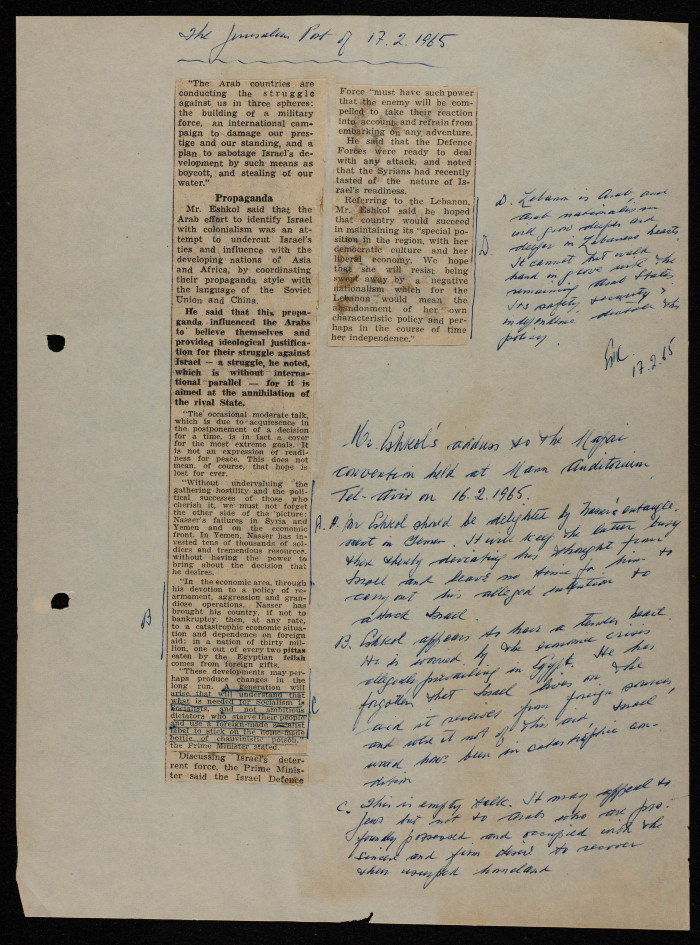 The Jerusalem Post of 17.2.1965
"The Arab countries are
conducting the struggle
against us in three spheres:
the building of a military
force, an international cam-
paign to damage our pres-
tige and our standing, and a
plan to sabotage Israel's de-
velopment by such means as
boycott, and stealing of our
water."
Propaganda
Mr. Eshkol said that the
Arab effort to identify Israel
with colonialism was an at-
tempt to undercut Israel's
ties and influence with the
developing nations of Asia
and Africa, by coordinating
their propaganda style with
the language of the Soviet
Union and China.
He said that this propa-
ganda influenced the Arabs
to believe themselves and
provided ideological justifica-
tion for their struggle against
Israel — a struggle, he noted,
which is without interna-
tional parallel — for it is
aimed at the annihilation of
the rival State.
"The occasional moderate talk,
which is due to acquiescence in
the postponement of a decision
for a time, is in fact a cover
for the most extreme goals. It
is not an expression of readi-
ness for peace. This does not
mean, of course, that hope is
lost for ever.
"Without undervaluing the
gathering hostility and the pol-
itical successes of those who
cherish it, we must not forget
the other side of the picture:
Nasser's failures in Syria and
Yemen and on the economic
front. In Yemen, Nasser has in-
vested tens of thousands of sol-
diers and tremendous resources,
without having the power to
bring about the decision that
he desires.
"In the economic area, through
his devotion to a policy of re-
armament, aggression and gran-
diose operations, Nasser has
brought his country, if not to
bankruptcy, then, at any rate,
to a catastrophic economic situa-
tion and dependence on foreign
aid: in a nation of thirty mil-
lion, one out of every two pittas
eaten by the Egyptian fellah
comes from foreign gifts.
"These developments may per-
haps produce changes in the
long run. A generation will
arise that will understand that
what is needed for Socialism is
Socialists, and not ambitious
dictators who starve their people
and use a foreign-made socialist
label to stick on the home-made
bottle of chauvinistic poison,"
the Prime Minister stated.
Discussing Israel's deter-
rent force, the Prime Minis-
ter said the Israel Defence
B
C
Force "must have such power
that the enemy will be com-
pelled to take their reaction
into account and refrain from
embarking on any adventure.
He said that the Defence
Forces were ready to deal
with any attack, and noted
that the Syrians had recently
tasted of the nature of Is-
rael's readiness.
Referring to the Lebanon,
Mr. Eshkol said he hoped
that country would succeed
in maintaining its "special po-
sition in the region, with her
democratic culture and her
liberal economy. We hope
that she will resist being
swept away by a negative
nationalism which for the
Lebanon would mean the
abandonment of her own
characteristic policy and per-
haps in the course of time
her independence."
D
D. Lebanon is Arab and
Arab nationalism
will grow deeper and
deeper in Lebanese hearts.
It cannot but walk
hand in glove with the
remaining Arab States.
Its safety, security &
independence this
policy.
17.2.65
Mr. Eshkol's address to the Mapai
convention held at Mann Auditorium
Tel-Aviv on 16.2.1965.
A. A. Mr Eshkol should be delighted by Nasser's entangle-
ment in Yemen. It will keep the latter busy
there thereby deviating his thought from
Israel and leave no time for him to
carry out his alleged intention to
attack Israel.
B. Eshkol appears to have a tender heart.
He is worried by the economic crisis
allegedly prevailing in Egypt. He has
forgotten that Israel lives on the
aid it receives from foreign sources
and were it not of this aid Israel
would have been in catastrophic con-
dition
C. This is empty talk. It may appeal to
Jews but not to Arabs who are pro-
foundly possessed and occupied with the
sincere and firm desire to recover
their usurped homeland